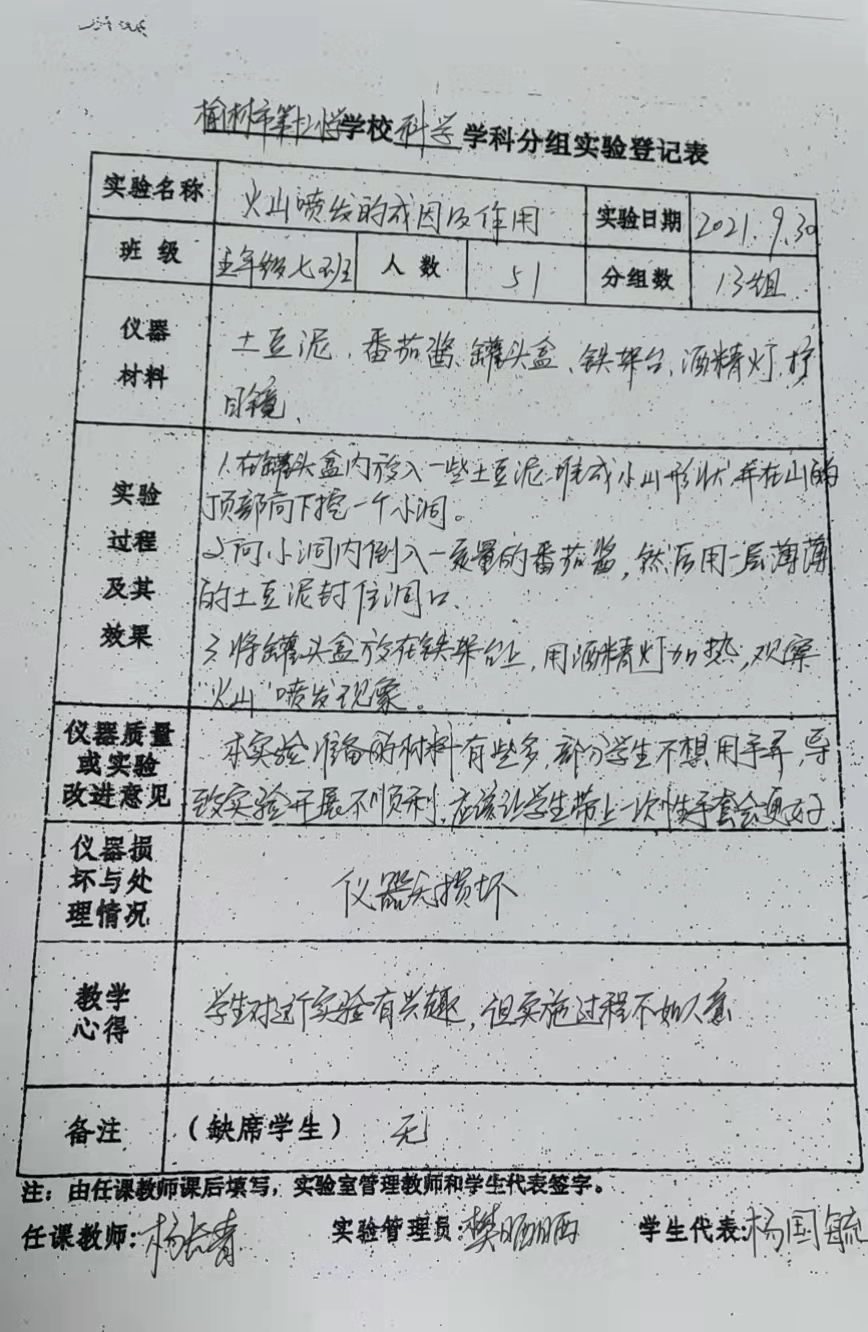 榆林市第十二小学学校科学学科分组实验登记表
实验名称 火山喷发的成因及作用 实验日期 2021.9.30
班 级 五年级七班 人 数 51 分组数 13组
仪器
材料
土豆泥、番茄酱、罐头盒、铁架台、酒精灯、护
目镜、
实验
过程
及其
效果
1.在罐头盒内放入一些土豆泥堆成小山形状,并在山的
顶部向下挖一个小洞。
2.向小洞内倒入一定量的番茄酱,然后用一层薄薄
的土豆泥封住洞口.
3.将罐头盒放在铁架台上,用酒精灯加热,观察
“火山”喷发现象。
仪器质量
或实验
改进意见
本实验准备的材料有些多,部分学生不想用手弄,导
致实验开展不顺利,应该让学生带上一次性手套会更好
仪器损
坏与处
理情况
仪器无损坏
教学
心得
学生对这个实验有兴趣,但实施过程不如人意
备注 (缺席学生) 无
注:由任课教师课后填写,实验室管理教师和学生代表签字。
任课教师:杨长青 实验管理员:樊晒晒 学生代表:杨国毓